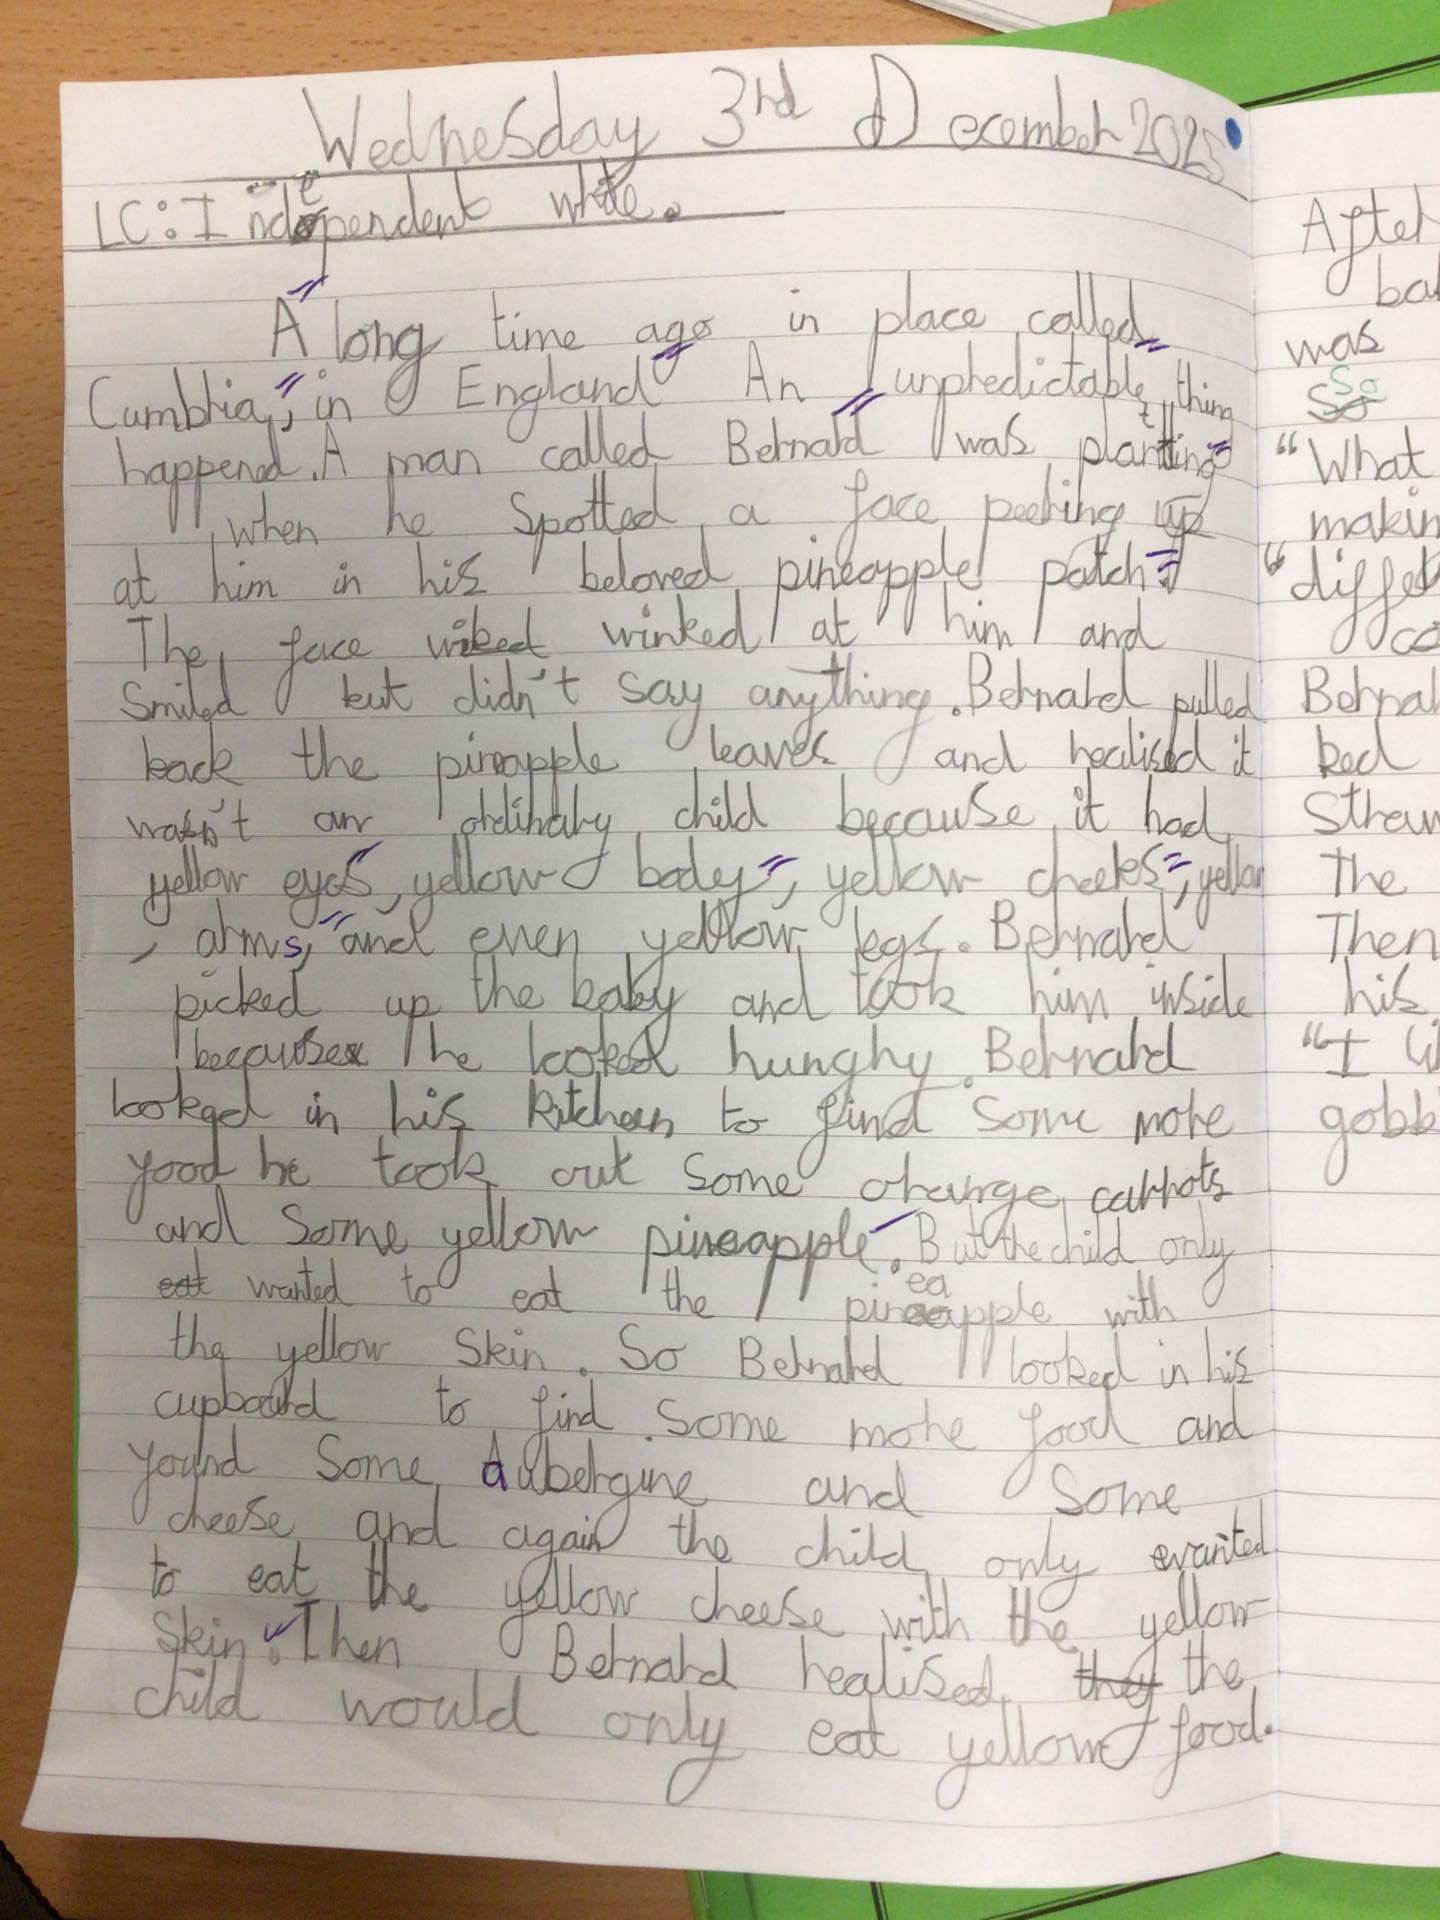 Wednesday 3rd December 2025
LC: Independent write.
A long time ago in place called
Cumbria, in England An unpredictable thing
happened. A man called Bernard was planting
when he spotted a face peering up
at him in his beloved pineapple patch.
The face wiked winked at him and
smiled but didn't say anything. Bernard pulled
back the pineapple leaves and realised it
wasn't an ordinary child because it had
yellow eyes, yellow body, yellow cheeks, yellow
, arms, and even yellow legs. Bernard
picked up the baby and took him inside
because he looked hungry. Bernard
looked in his kitchen to find some more
food he took out some orange carrots
and some yellow pineapple. But the child only
eat wanted to eat the pineapple with
the yellow skin. So Bernard looked in his
cupboard to find some more food and
found some aubergine and some
cheese and again the child only wanted
to eat the yellow cheese with the yellow
skin. Then Bernard realised they the
child would only eat yellow food.
After
was
So
"What
"
Bernar
ked
Straw
The
Then
his
"I li
gobb